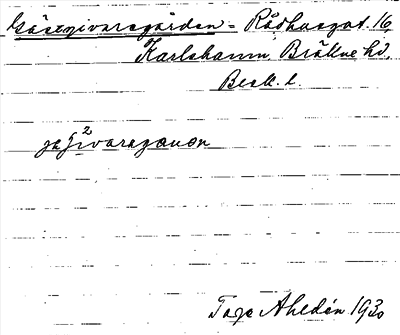 Gästgivaregården - Rådhusgat. 16,
Karlshamn, Bräkne hd,
Blek. l.
2
Tage Ahldén 1930